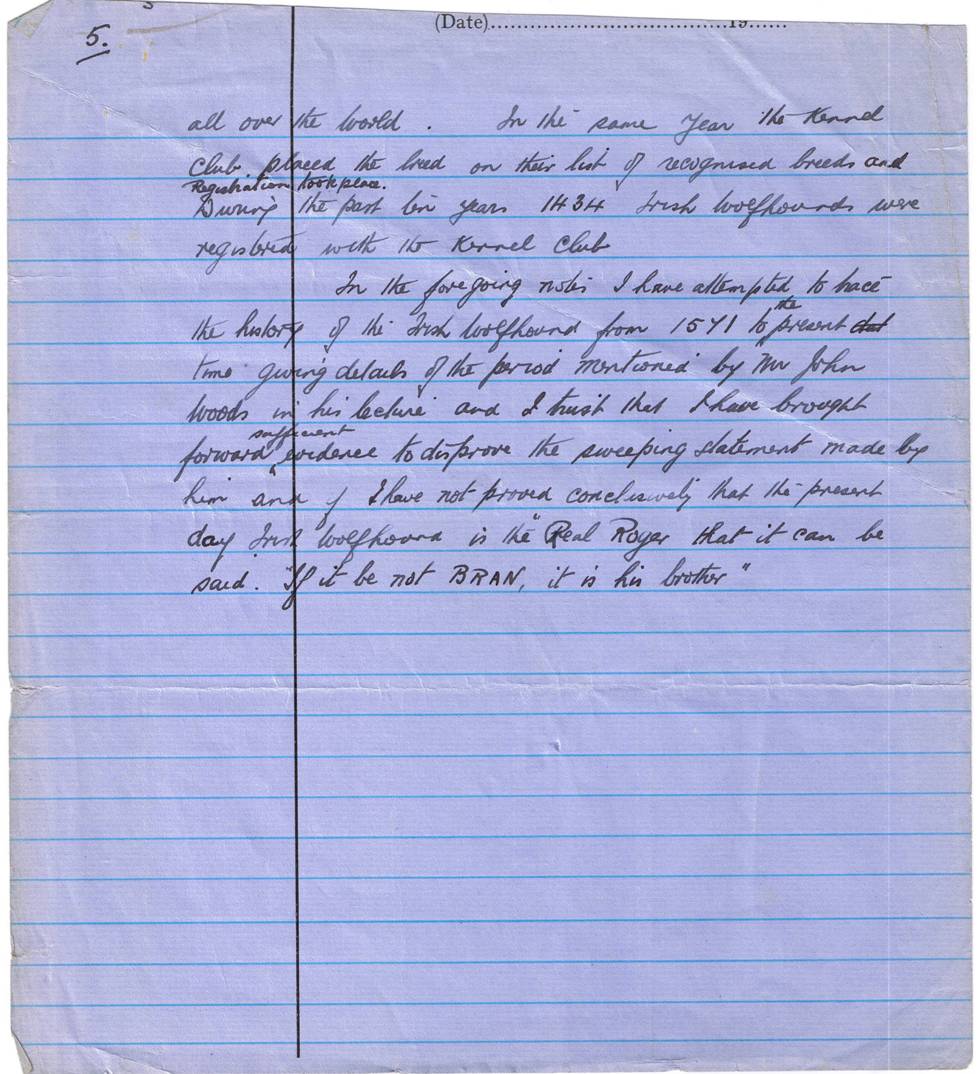 (Date)....................................19......
5.
all over the world . In the same year the Kennel
Club placed the breed on their list of recognised breeds and
Registration took place.
During the past ten years 1434 Irish Wolfhounds were
registered with the Kennel Club
In the foregoing notes I have attempted to trace
the
the history of the Irish Wolfhound from 1571 to present
time giving details of the period mentioned by Mr John
Woods in his lecture and I trust that I have brought
sufficient
forward evidence to disprove the sweeping statement made by
him and if I have not proved conclusively that the present
day Irish Wolfhound is the "Real Roger that it can be
said. "If it be not BRAN, it is his brother"